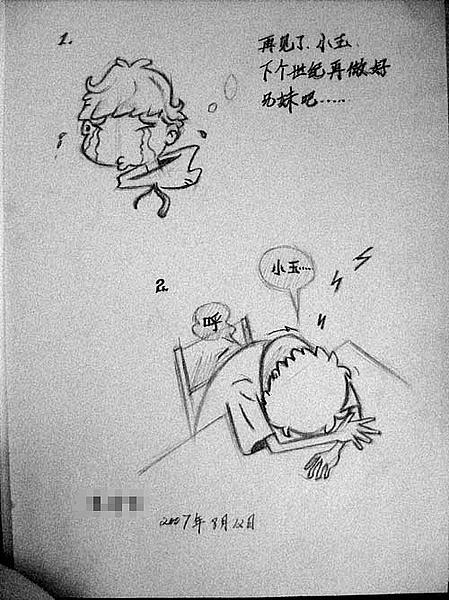 1.
再见了、小玉
下个世纪再做好
兄妹吧……
2.
小玉…
呼
2007年8月12日